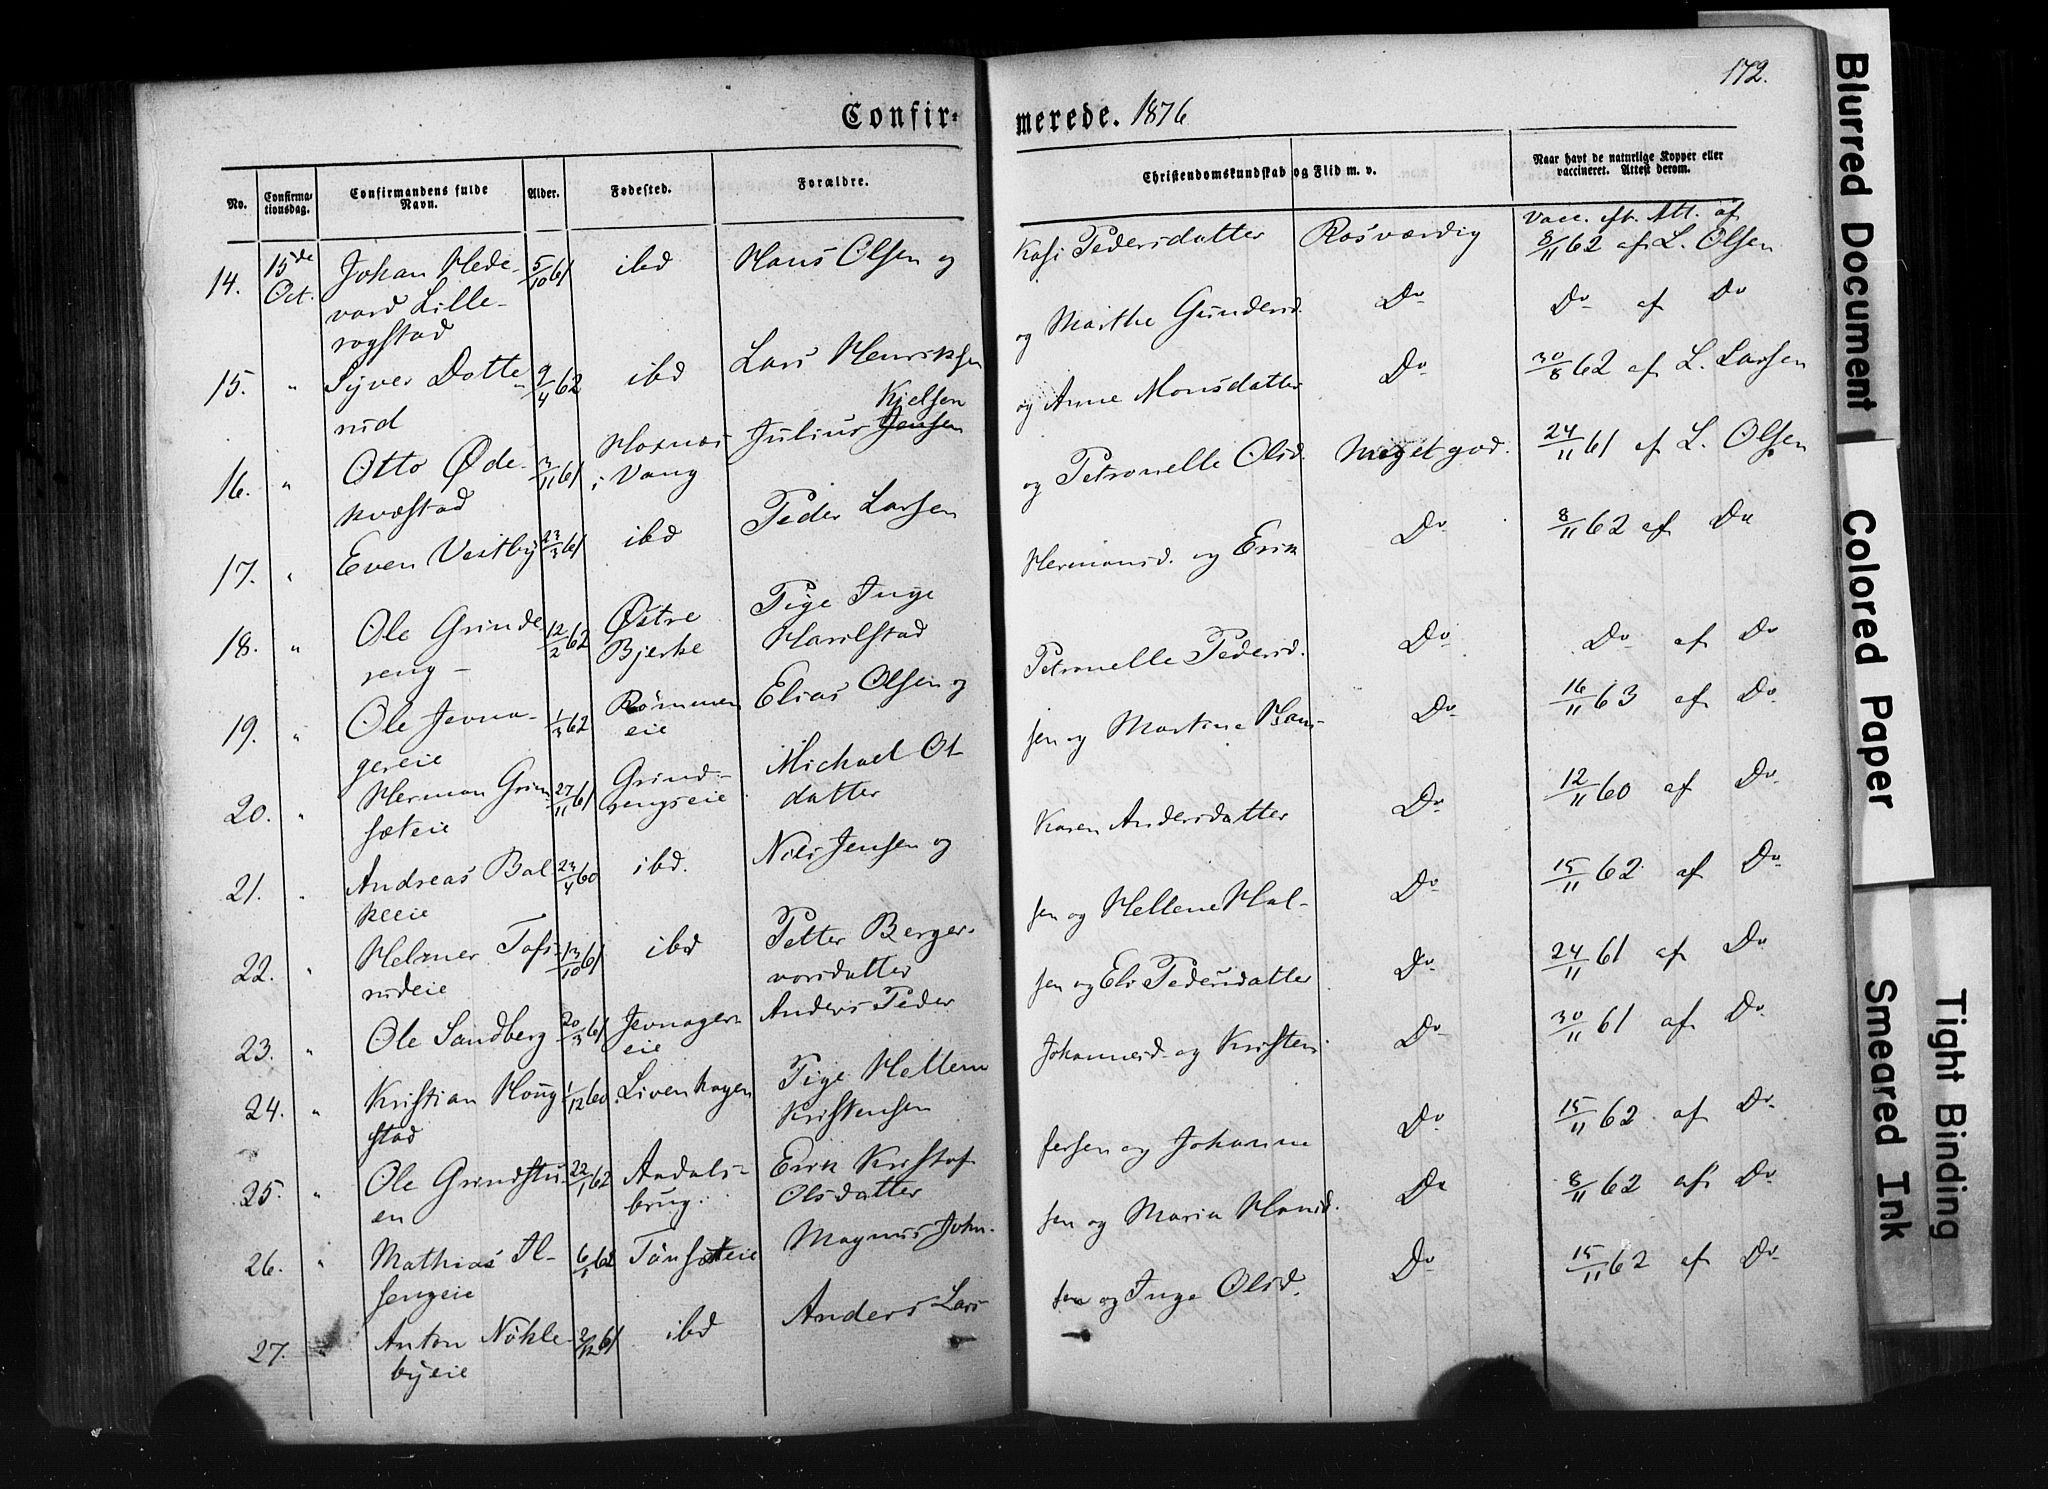 172.
Confir-
merede. 1876
No.
Confirma-
tionsdag.
Confirmandens fulde
Navn.
Alder.
Fødested.
Forældre.
Christendomskundskab og Flid m. v.
Naar havt de naturlige Kopper eller
vaccineret. Attest derom.
14. 15de Oct. Johan Hede- 5/10 61 ibd Hans Olsen og
vard Lille-
rogstad
15. " Syver Dotte- 9/4 62 ibd Lars Henriksen
rud
16. " Otto Øde- 3/11 61 i Vang Julius Jensen Kielsen
kvæstad
17. " Even Vestby 23/3 61 ibd Peder Larsen
18. " Ole Grinde 12/2 62 Østre Pige Inge
reng - Bjerke Harilstad
19. " Ole Jevna- 1/3 62 Rømmen Elias Olsen og
gereie eie
20. " Herman Grim- 27/11 61 Grind- Michael Ol-
sæteie rengseie datter
21. " Andreas Bal 23/4 60 ibd. Nils Jensen og
keeie
22. " Helmer Tofs- 13/10 61 ibd Petter Berger-
rudeie vorsdatter
23. " Ole Sandberg 20/3 61 Jevnager Anders Peder
eie
24. " Kristian Houg 1/12 60 Livenhagen Pige Hellene
stad Kristensen
25. " Ole Grindstu- 22/1 62 Aadals- Erik Kristof
en brug. Olsdatter
26. " Mathias Al- 6/1 62 Tønsæteie Magnus John-
sengeie
27. " Anton Nøkle- 2/12 61 ibd Anders Lars-
byeie
Kasi Pedersdatter Rosværdig Vacc. eft. Att. af
8/11 62 af L. Olsen
og Marthe Gundersd. Do Do af Do
og Anne Monsdatter Do 30/8 62 af L. Larsen
og Petronelle Olsd. Meget god. 24/11 61 af L. Olsen
Hermansd. og Erik Do 8/11 62 af Do
Petronelle Pedersd. Do Do af Do
sen og Martine Hans- Do 16/11 63 af Do
Karen Andersdatter Do 12/11 60 af Do
sen og Hellene Hal- Do 15/11 62 af Do
sen og Eli Pedersdatter Do 24/11 61 af Do
Johannesd. og Kristen Do 30/11 61 af Do
fersen og Johanne Do 15/11 62 af Do
sen og Maria Hansd. Do 8/11 62 af Do
sen og Inge Olsd. Do 15/11 62 af Do
Blurred Document
Colored Paper
Smeared Ink
Tight Binding